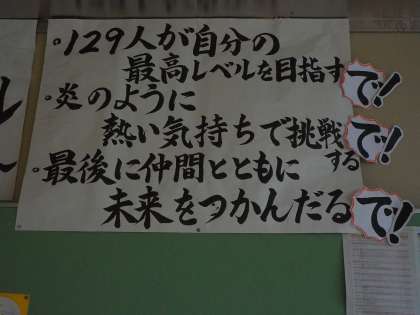 ・129人が自分の
最高レベルを目指すで!
・炎のように
熱い気持ちで挑戦するで!
・最後に仲間とともに
未来をつかんだるで!